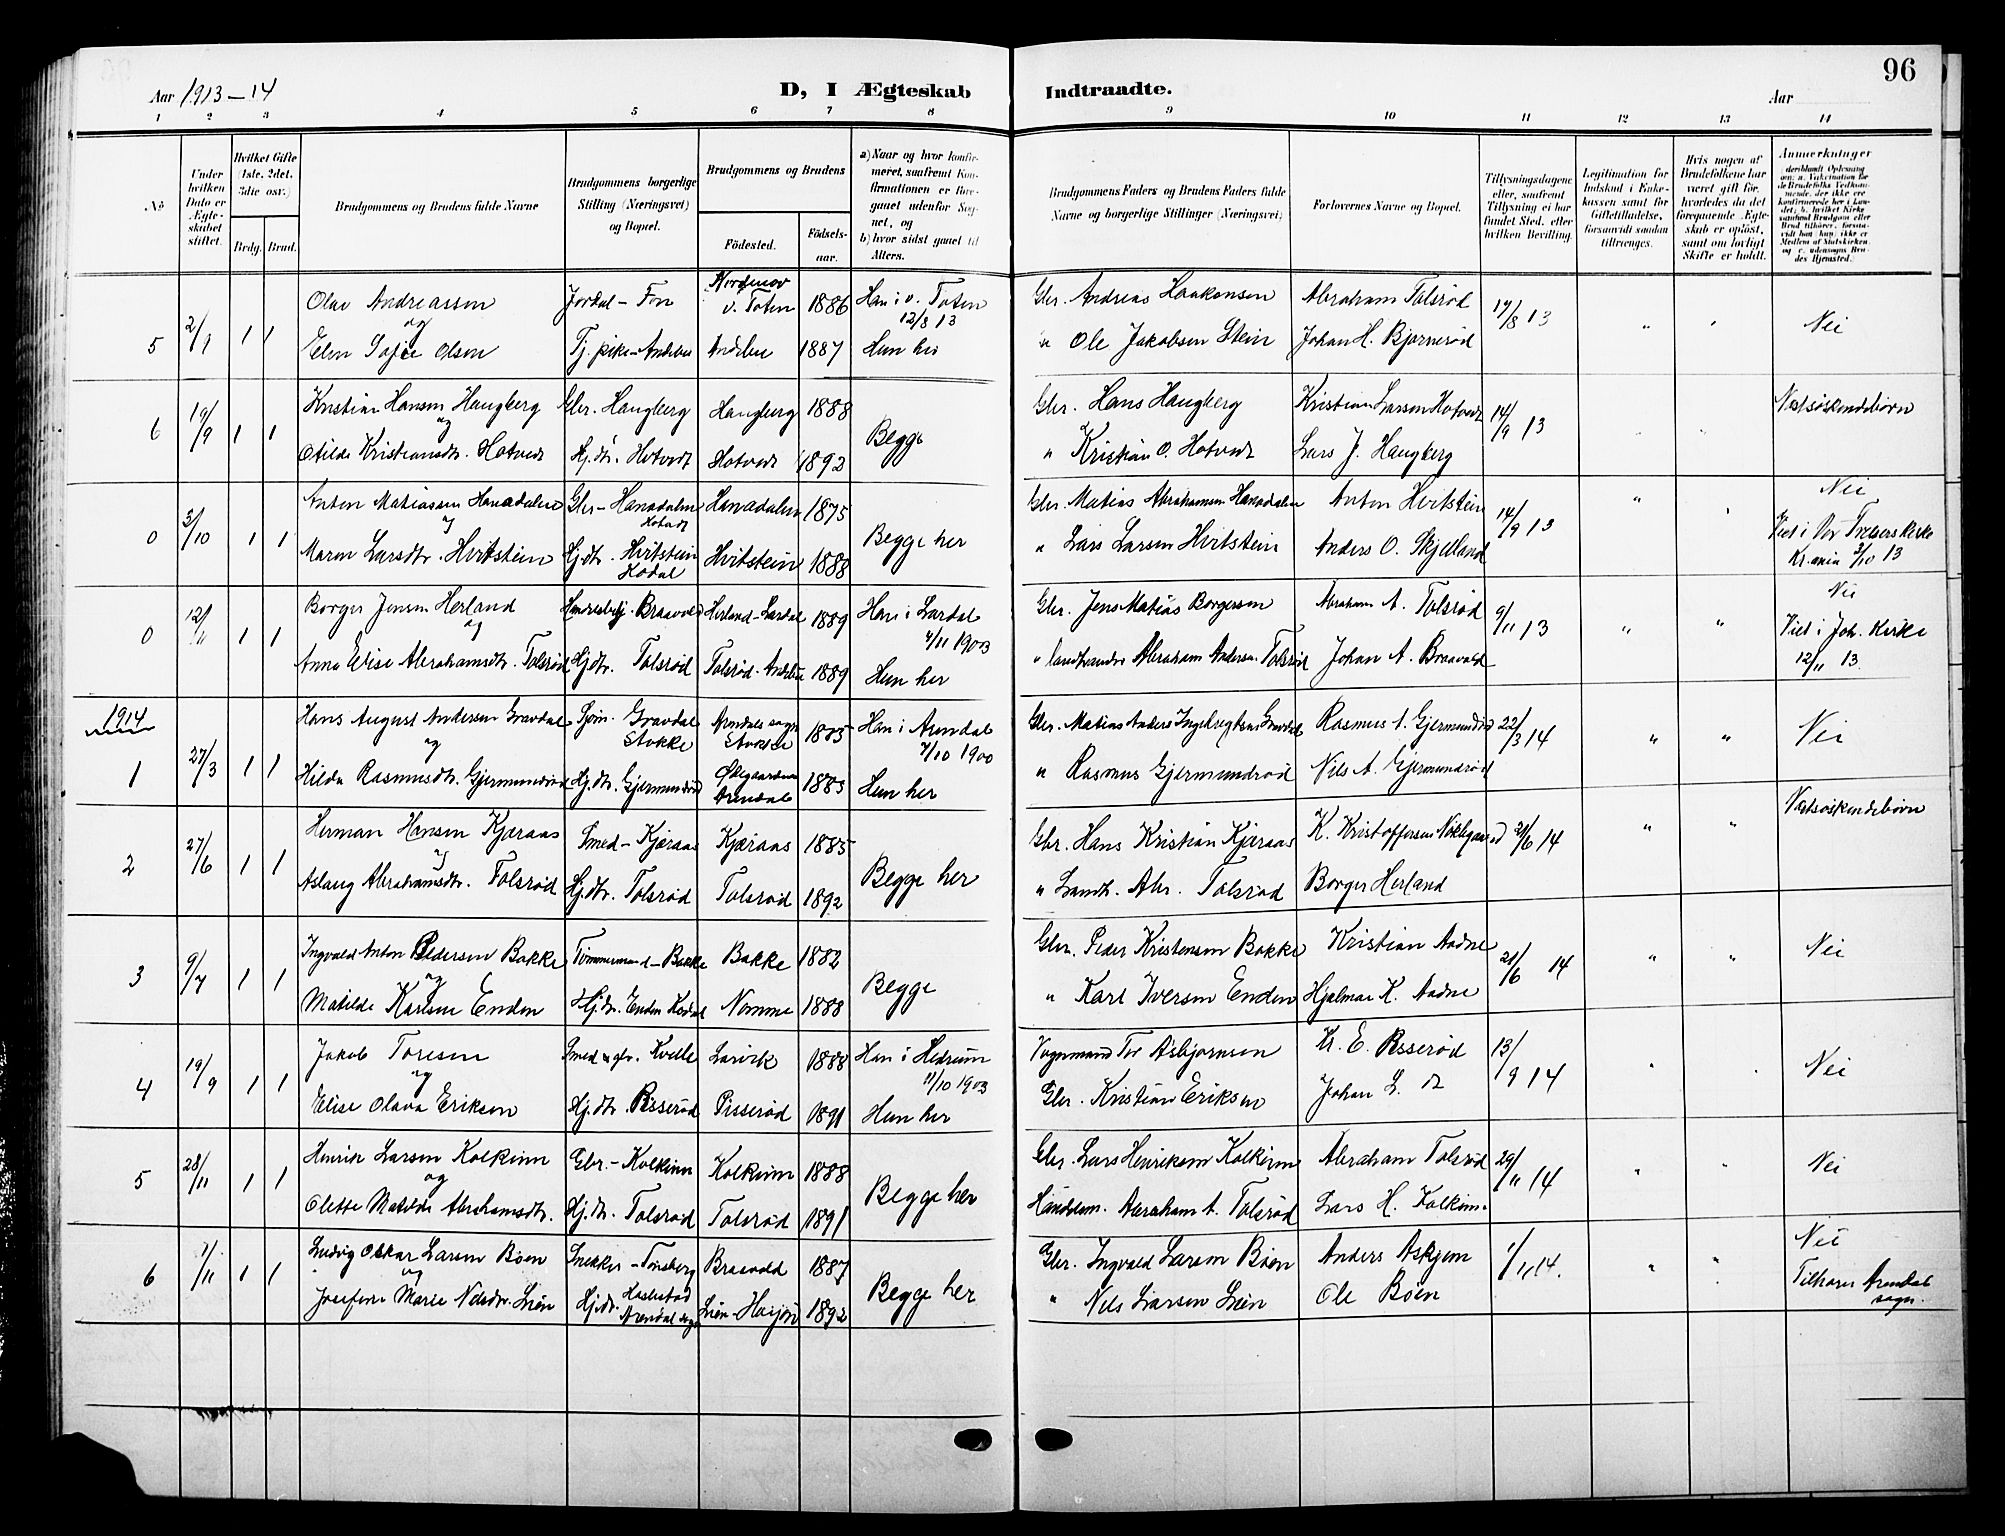 96
Aar 1913-14
D, I Ægteskab Indtraadte.
Aar
1 2 3 4 5 6 7 8 9 10 11 12 13 14
№
Under hvilken Dato er Ægteskabet stiftet.
Hvilket Gifte (1ste, 2det, 3die osv.)
Brdg. Brud.
Brudgommens og Brudens fulde Navne
Brudgommens borgerlige Stilling (Næringsvei) og Bopæl.
Brudgommens og Brudens
Födested.
Födsels-aar.
a) Naar og hvor konfirmeret, saafremt Konfirmationen er foregaaet udenfor Sognet, og
b) hvor sidst gaaet til Alters.
Brudgommens Faders og Brudens Faders fulde Navne og borgerlige Stillinger (Næringsvei)
Forlovernes Navne og Bopæl.
Tillysningsdagene eller, saafremt Tillysning ei har fundet Sted, efter hvilken Bevilling.
Legitimation for Indskud i Enkekassen samt for Giftetilladelse, forsaavidt saadan tiltrænges.
Hvis nogen af Brudefolkene har været gift før, hvorledes da det foregaaende Ægteskab er opløst, samt om lovligt Skifte er holdt.
Anmerkninger
5 2/9 1 1 Olav Andreassen Jordal - Fon v. Toten 1886 Han i v. Toten 12/8 13 Gbr. Andreas Haakensen Abraham Tolsrød 17/8 13 " " Nei
og
Elen Sofie Olsen Tj. pike - Andebu Andebu 1887 Hun her " Ole Jakobsen Stein Johan H. Bjørnerød
6 19/9 1 1 Kristian Hansen Haugberg Gbr. Haugberg Haugberg 1888 Begge Gbr. Hans Haugberg Kristian Larsen Hotvedt 14/9 13 " " Næstsøskendebørn
og
Otilde Kristiansdtr. Hotvedt Hj.dtr. Hotvedt Hotvedt 1892 " Kristian O. Hotvedt Lars J. Haugberg
0 3/10 1 1 Anton Matiassen Hanadalen Gbr - Hanadalen Hotvedt Hanadalen 1875 Begge her Gbr. Matias Abrahamsen Hanadalen Anton Hvitstein 14/9 13 " " Nei
og
Maren Larsdtr. Hvitstein Hj.dtr. Hvitstein Kodal Hvitstein 1888 " Lars Larsen Hvitstein Anders O. Skjelland Viet i Vor Frelsers Kirke Kr.ania 3/10 13
0 12/11 1 1 Borger Jensen Herland Braavold Herland - Lardal 1889 Han i Lardal 4/11 1903 Gbr. Jens Matias Borgersen Abraham A. Tolsrød 9/11 13 " " Nei
og
Anna Elise Abrahamsdtr. Tolsrød Hj.dtr. Tolsrød Tolsrød - Andebu 1889 Hun her " landhandler Abraham Andersen Tolsrød Johan A. Braavold Viet i Joh. Kirke 12/11 13.
1914
1 27/3 1 1 Hans August Andersen Gravdal Gravdal Stokke Arendals sogn Stokke Han i Arendal 7/10 1900 Gbr. Matias Anders Ingebregtsen Gravdal Rasmus A. Gjermundrød 22/3 14 " " Nei
og
Hilda Rasmusdtr. Gjermundrød Hj.dtr. Gjermundrød Arendal Hun her " Rasmus Gjermundrød Nils A. Gjermundrød
2 27/6 1 1 Herman Hansen Kjæraas Smed - Kjæraas Kjæraas 1885 Begge her Gbr. Hans Kristian Kjæraas K. Kristoffersen Nøklegaard 21/6 14 " " Næstsøskendebørn
og
Aslaug Abrahamsdtr. Tolsrød Hj.dtr. Tolsrød Tolsrød 1892 " Landh. Abr. Tolsrød Borger Herland
3 9/7 1 1 Ingvald Anton Pedersen Bakke Tømmermand - Bakke Bakke 1882 Begge Gbr. Peder Kristensen Bakke Kristian Aadne 21/6 14 " " Nei
og
Matilde Karlsen Enden Hj.dtr. Enden Kodal Nomme 1888 " Karl Iversen Enden Hjalmar K. Aadne
4 19/9 1 1 Jakob Toresen Smed & gbr. Kvelle Larvik 1888 Han i Hedrum 11/10 1903 Vognmand Tor Asbjørnsen Kr. E. Pisserød 13/9 14 " Nei
og
Elise Olava Eriksen Hj.dtr. Pisserød Pisserød 1891 Hun her Gbr. Kristian Eriksen Johan L. do
5 28/11 1 1 Henrik Larsen Kolkinn Gbr. - Kolkinn Kolkinn 1888 Begge her Gbr. Lars Henriksen Kolkinn Abraham Tolsrød 29/11 14 " " Nei
og
Olette Matilde Abrahamsdtr. Hj.dtr. Tolsrød Tolsrød 1891 Handelsm. Abraham A. Tolsrød Lars H. Kolkinn
6 1/11 1 1 Ludvig Oskar Larsen Bøen Snekker - Tønsberg Braavold 1887 Begge her Gbr. Ingvald Larsen Bøen Anders Askjem 1/11 14. " " Nei
og
Josefine Marie Nilsdtr. Lien Hj.dtr. Arendal sogn 1892 " Nils Larsen Lien Ole Bøen Tilhører Arendal sogn.